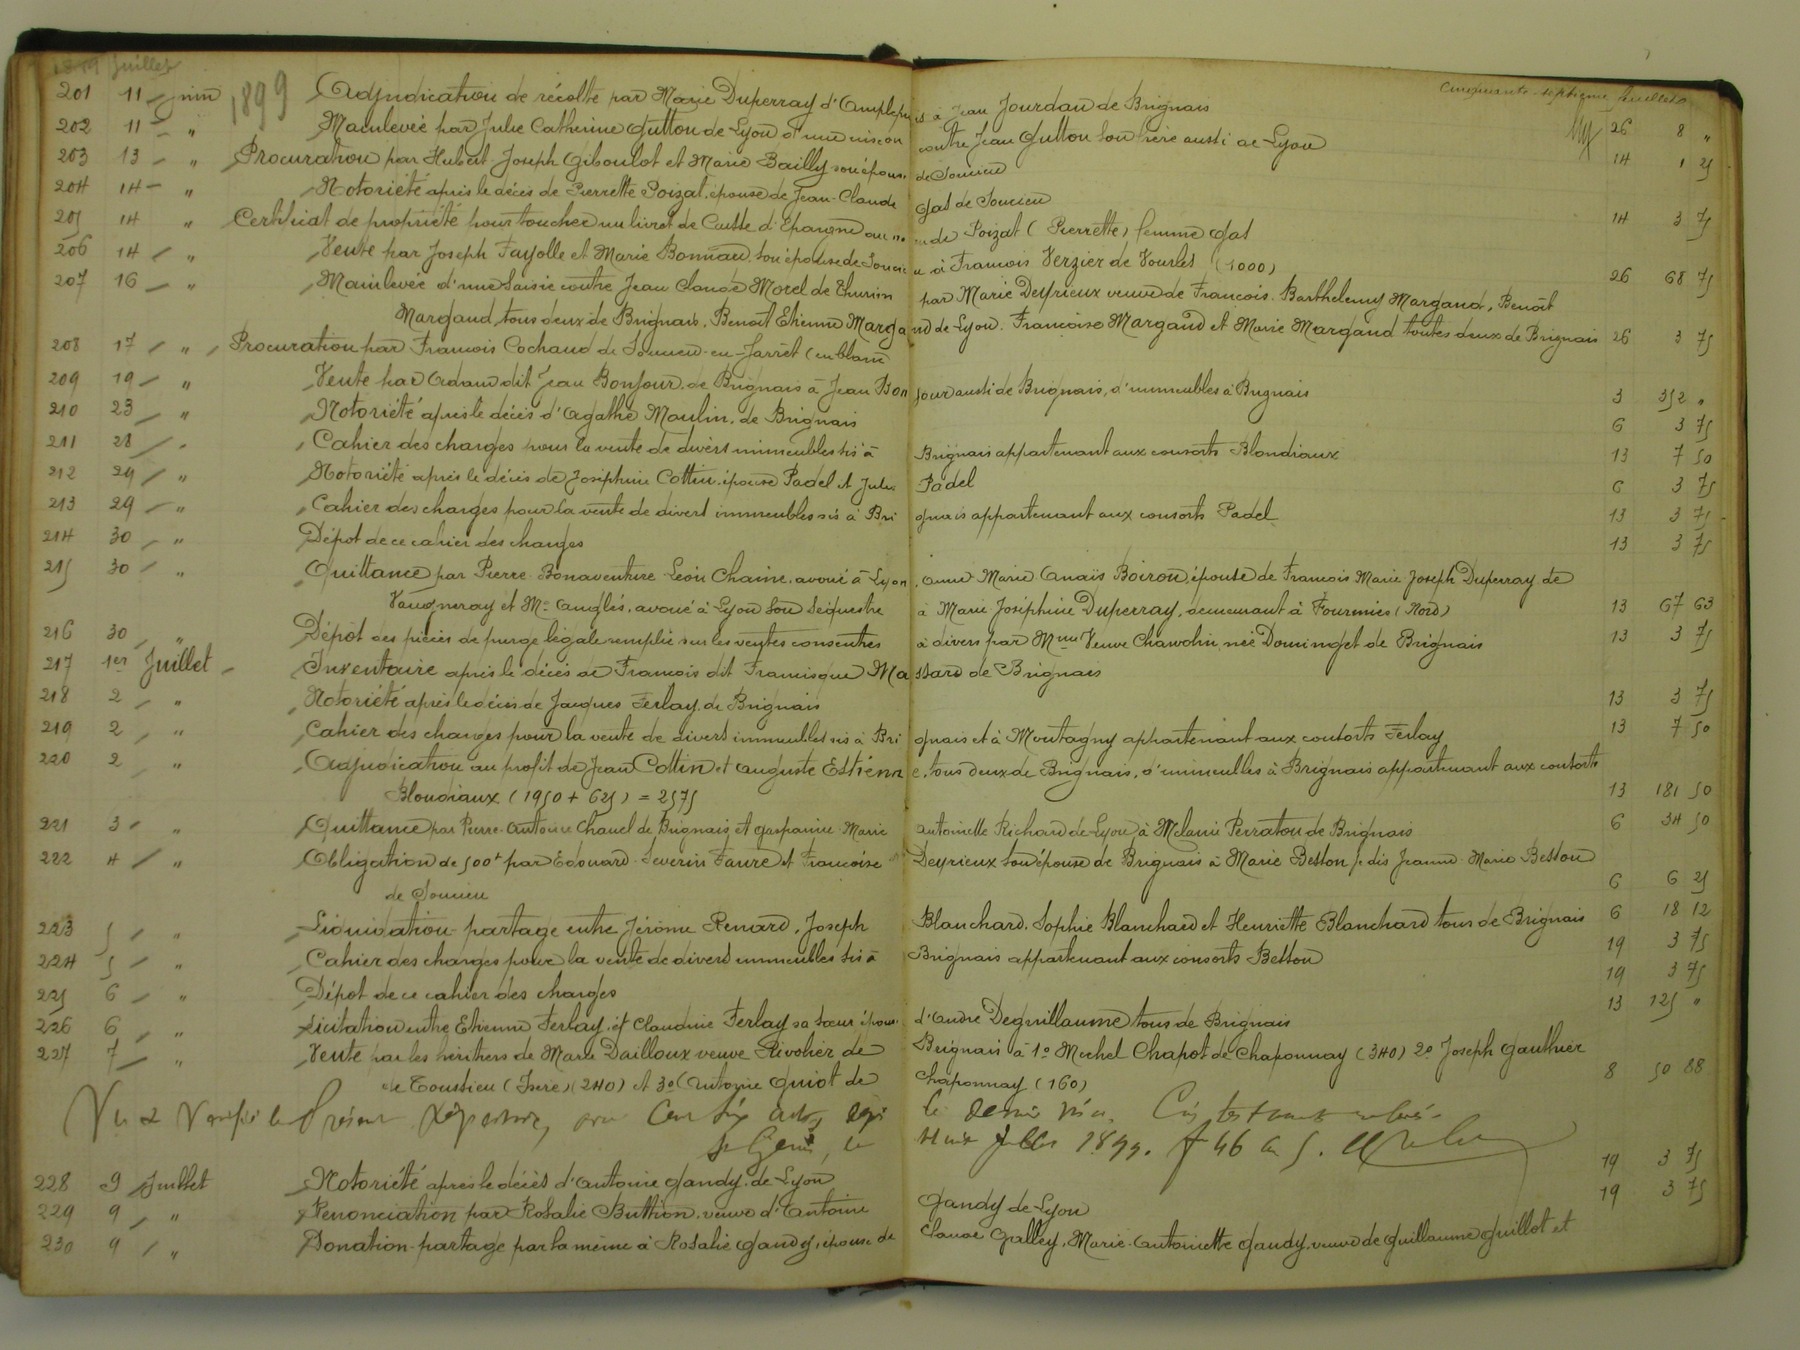 1899 Juillet
cinquante-septième feuillet
201 11 juin 1899 Adjudication de récolte par Marie Duperray d'Amplepuis à Jean Jourdan de Brignais 26 8 "
202 11 " Mainlevée par Julie Catherine Gutton de Lyon d'une inscon contre Jean Gutton son frère aussi de Lyon 14 1 25
203 13 " Procuration par Hubert Joseph Giboulot et Marie Bailly son épouse de Soucieu
204 14 " Notoriété après le décès de Pierrette Poizat, épouse de Jean-Claude Gat de Soucieu 14 3 75
205 14 " Certificat de propriété pour toucher un livret de Caisse d'Epargne au nom de Poizat (Pierrette) femme Gat
206 14 " Vente par Joseph Fayolle et Marie Bonnau son épouse de Soucieu à François Verzier de Vourles (1000) 26 68 75
207 16 " Mainlevée d'une Saisie contre Jean Claude Morel de Thurins par Marie Deyrieux veuve de François Barthelemy Margand, Benoît
Margand tous deux de Brignais, Benoît Etienne Margand de Lyon, Françoise Margand et Marie Margand toutes deux de Brignais 26 3 75
208 17 " Procuration par François Cochaud de Soucieu-en-Jarret (en blanc
209 19 " Vente par Adam dit Jean Bonjour, de Brignais à Jean Bonjour aussi de Brignais, d'immeubles à Brignais 3 352 "
210 23 " Notoriété après le décès d'Agathe Moulin, de Brignais 6 3 75
211 28 " Cahier des charges pour la vente de divers immeubles sis à Brignais appartenant aux consorts Blondiaux 13 7 50
212 29 " Notoriété après le décès de Joséphine Cottin épouse Padel et Jules Padel 6 3 75
213 29 " Cahier des charges pour la vente de divers immeubles sis à Brignais appartenant aux consorts Padel 13 3 75
214 30 " Dépot de ce cahier des charges 13 3 75
215 30 " Quittance par Pierre Bonaventure Léon Chaine, avoué à Lyon, Anne Marie Anaïs Boiron, épouse de François Marie Joseph Duperray de
Vaugneray et Me Anglès, avoué à Lyon son séquestre à Marie Joséphine Duperray, demeurant à Fourmies (Nord) 13 67 63
216 30 " Dépôt des pièces de purge légale remplie sur les ventes consenties à divers par Mme Veuve Chavolin née Dominget de Brignais 13 3 75
217 1er Juillet Inventaire après le décès de François dit Francisque Massard de Brignais
218 2 " Notoriété après le décès de Jacques Ferlay, de Brignais 13 3 75
219 2 " Cahier des charges pour la vente de divers immeubles sis à Brignais et à Montagny appartenant aux consorts Ferlay 13 7 50
220 2 " Adjudication au profit de Jean Cottin et Auguste Estienne, tous deux de Brignais, d'immeubles à Brignais appartenant aux consorts
Blondiaux (1950 + 625) = 2575 13 181 50
221 3 " Quittance par Pierre Antoine Chanel de Brignais et Gasparine Marie Antoinette Richard de Lyon à Mélanie Perraton de Brignais 6 34 50
222 4 " Obligation de 500f par Edouard Severin Favre et Françoise Deyrieux son épouse de Brignais à Marie Besson dis Jeanne Marie Besson
de Soucieu 6 6 25
223 5 " Liquidation partage entre Jérôme Renard, Joseph Blanchard, Sophie Blanchard et Henriette Blanchard tous de Brignais 6 18 12
224 5 " Cahier des charges pour la vente de divers immeubles sis à Brignais appartenant aux consorts Besson 19 3 75
225 6 " Dépot de ce cahier des charges 19 3 75
226 6 " Licitation entre Etienne Ferlay et Claudine Ferlay sa sœur épouse d'André Deguillaume tous de Brignais 13 125 "
227 7 " Vente par les héritiers de Marie Dailloux veuve Rivolier de Brignais à 1º Michel Chapot de Chaponnay (340) 2º Joseph Gauthier
de Toussieu (Isère) (240) et 3º Antoine Guiot de Chaponnay (160) 8 50 88
Vu et Vérifié le Présent Répertoire, pour Cent six actes depuis le dernier visa.
St Genis, le Huit Juillet 1899. f 46 C 5.
228 9 Juillet Notoriété après le décès d'Antoine Gandy, de Lyon 19 3 75
229 9 " Renonciation par Rosalie Buttion, veuve d'Antoine Gandy de Lyon 19 3 75
230 9 " Donation-partage par la même à Rosalie Gandy, épouse de Claude Galley, Marie-Antoinette Gandy, veuve de Guillaume Guillot et